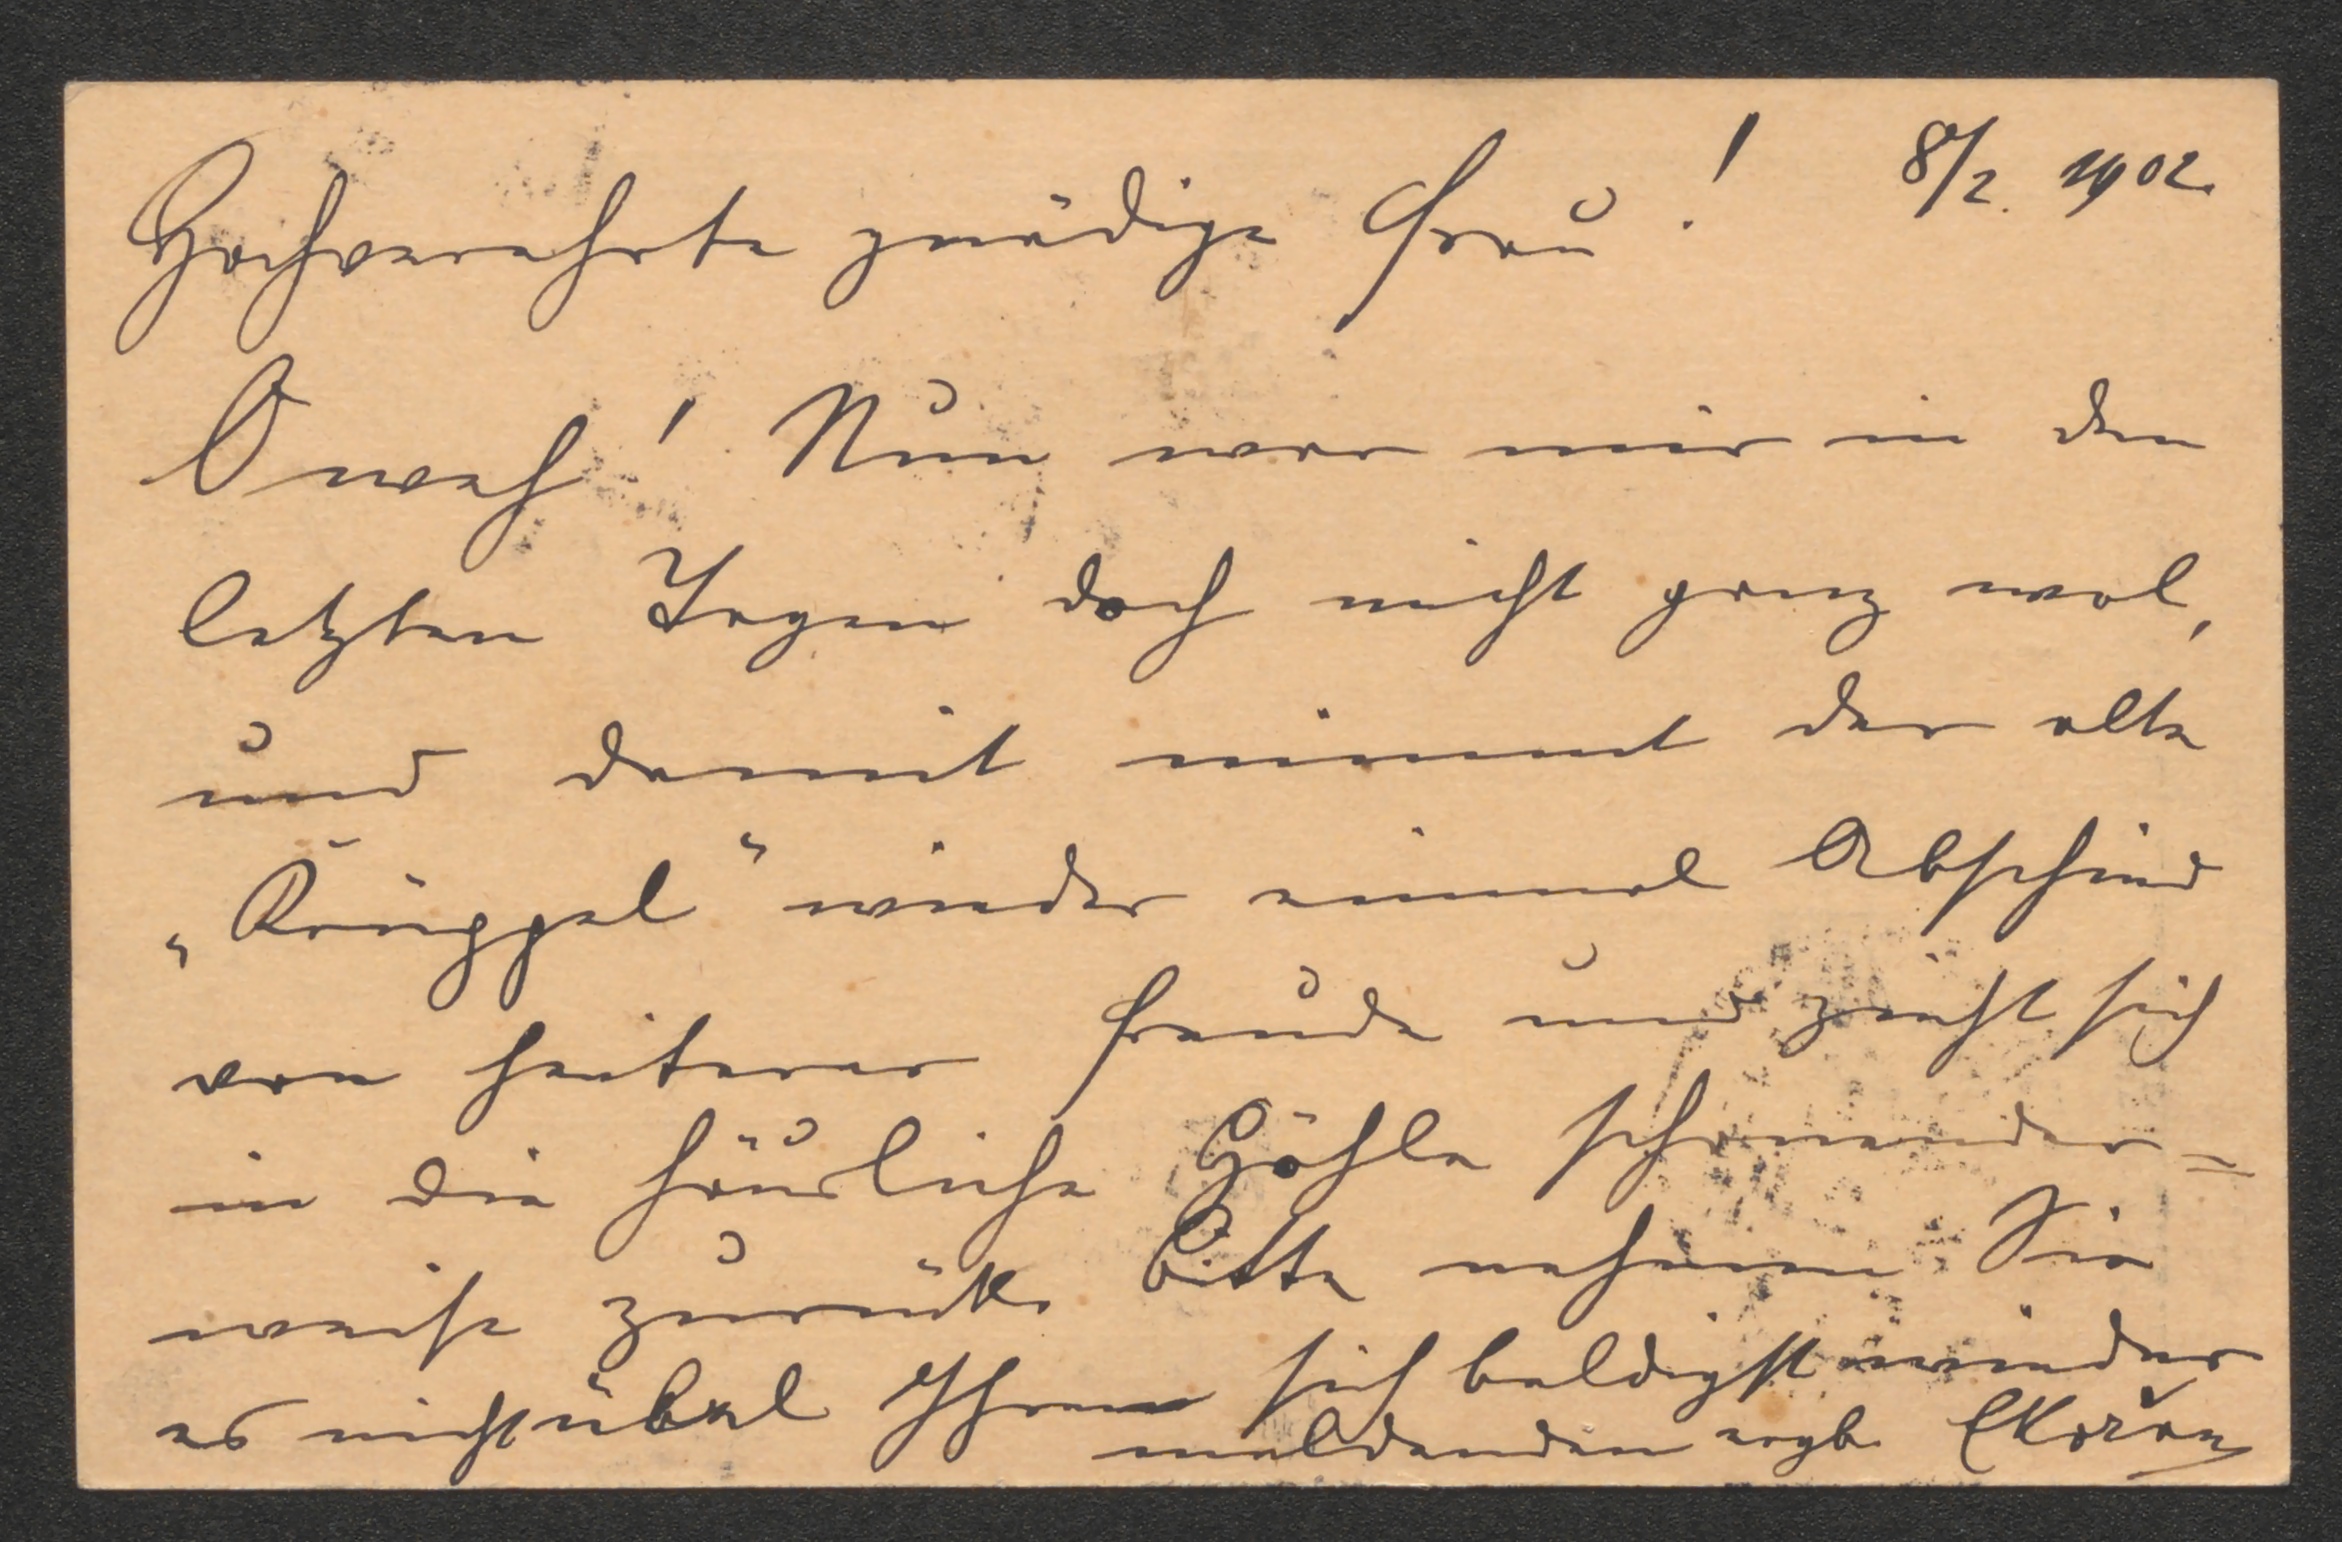 8/2. 1902.
Hochverehrte gnädige Frau!
O weh! Nun war mir in den
letzten Tagen doch nicht ganz wol,
und damit nimmt der alte
„Krüppel" wieder einmal Abschied
von heiterer Freude und zieht sich
in die häusliche Höhle
weise zurück. Bitte nehmen Sie
es nicht übel Ihrem sich baldigst wieder
meldenden ergb.